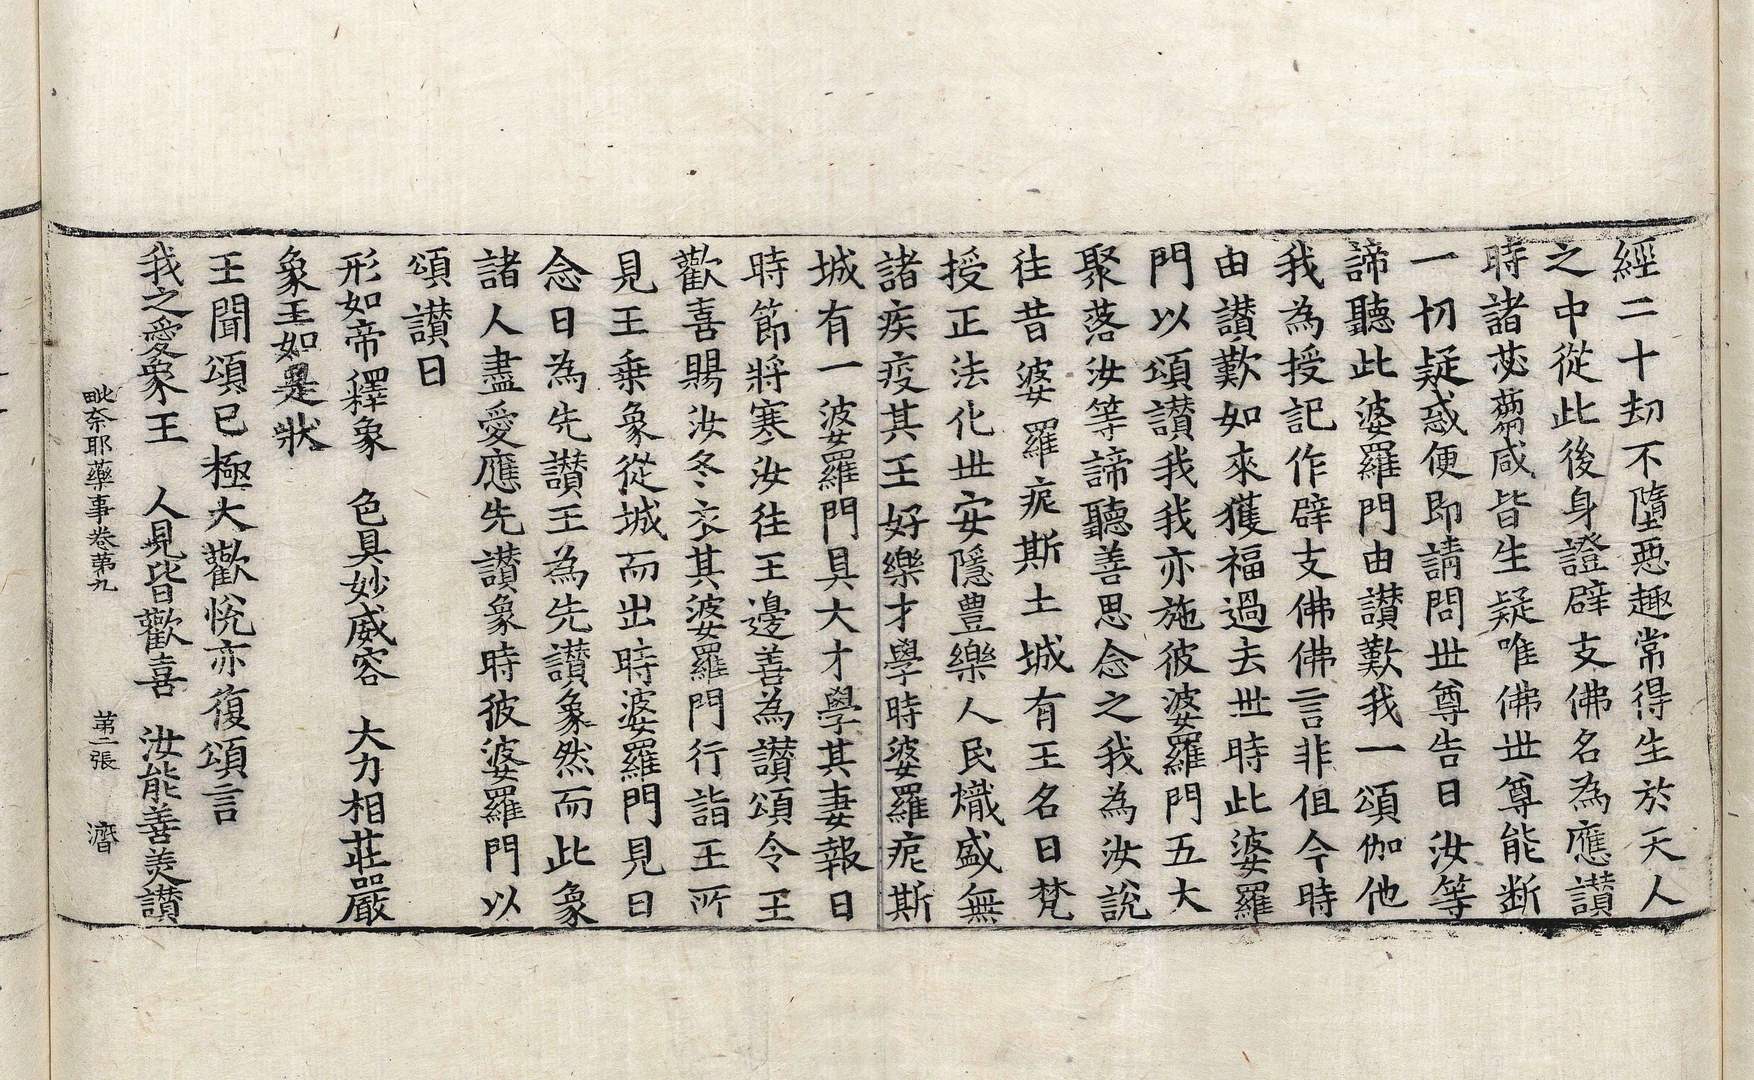 經二十劫不墮惡趣常得生於天人
之中從此後身證辟支佛名為應讃
時諸苾蒭咸皆生疑唯佛世尊能斷
一切疑惑便即請問世尊告曰汝等
諦聽此婆羅門由讃歎我一頌伽他
我為授記作辟支佛佛言非但今時
由讃歎如來獲福過去世時此婆羅
門以頌讃我我亦施彼婆羅門五大
聚落汝等諦聽善思念之我為汝說
往昔婆羅痆斯土城有王名曰梵
授正法化世安隱豊樂人民熾盛無
諸疾疫其王好樂才學時婆羅痆斯
城有一婆羅門具大才學其妻報曰
時節將寒汝往王邊善為讃頌令王
歡喜賜汝冬衣其婆羅門行詣王所
見王乗象從城而出時婆羅門見曰
念曰為先讃王為先讃象然而此象
諸人盡愛應先讃象時彼婆羅門以
頌讃曰
形如帝釋象　色具妙威容　大力相莊嚴
象王如是狀
王聞頌已極大歡悅亦復頌言
我之愛象王　人見皆歡喜　汝能善美讃
毗奈耶藥事卷第九　第二張　濟